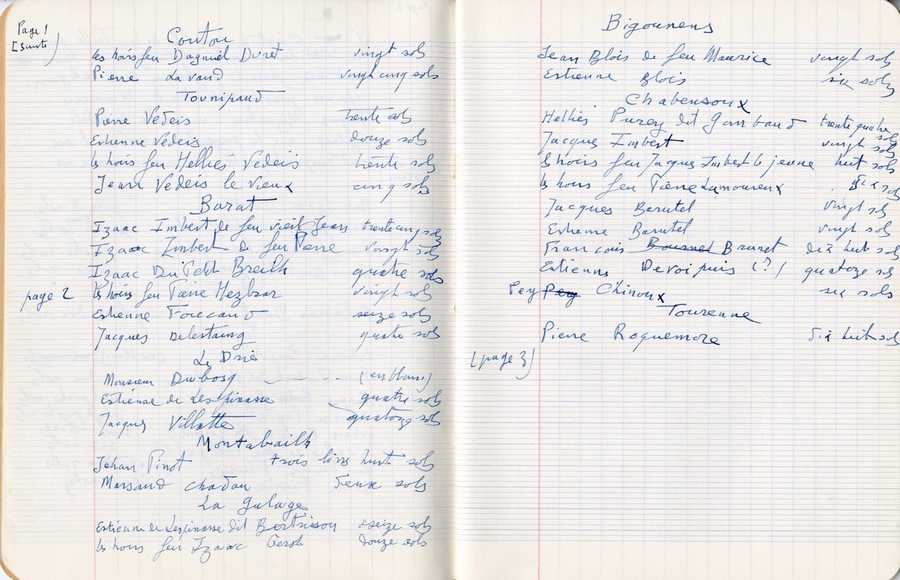 Page 1
(Suite)
Coutou
les hoirs feu Daniel Duret vingt sols
Pierre Lavaud vingt cinq sols
Tounipaud
Pierre Vedeis trente sols
Estienne Vedeis douze sols
les hoirs feu Helliés Vedeis trente sols
Jean Vedeis le vieux cinq sols
Barat
Izaac Imbert de feu vieil Jean trente cinq sols
Izaac Imbert de feu Pierre vingt sols
Izaac Du Petit Breilh quatre sols
page 2
les hoirs feu Pierre Mezbar vingt sols
Estienne Foucaud seize sols
Jacques Delestaing quatre sols
Le Drié
Monsieur Dubosq (en blanc)
Estienne de Lespinasse quatre sols
Jacques Villatte quatorze sols
Montabailh
Jehan Pinot trois livres huit sols
Marsaud chadau deux sols
La gulage
Estienne de Lespinasse dit Bertrisson seize sols
les hoirs feu Izaac douze sols
Bigounens
Jean Blois de feu Maurice vingt sols
Estienne Blois six sols
Chabensoux
Helliés Purey dit Gambaud trente quatre sols
Jacques Imbert vingt sols
les hoirs feu Jacques Imbert le jeune huit sols
les hoirs feu Pierre Lamoureux six sols
Jacques Barutel vingt sols
Estienne Barutel vingt sols
Francois Bournet Brunet dix huit sols
Estienne Devoipuis (?) quatorze sols
Pey Pey Chinoux six sols
Tourenne
Pierre Roquemore dix huit sols
(page 3)